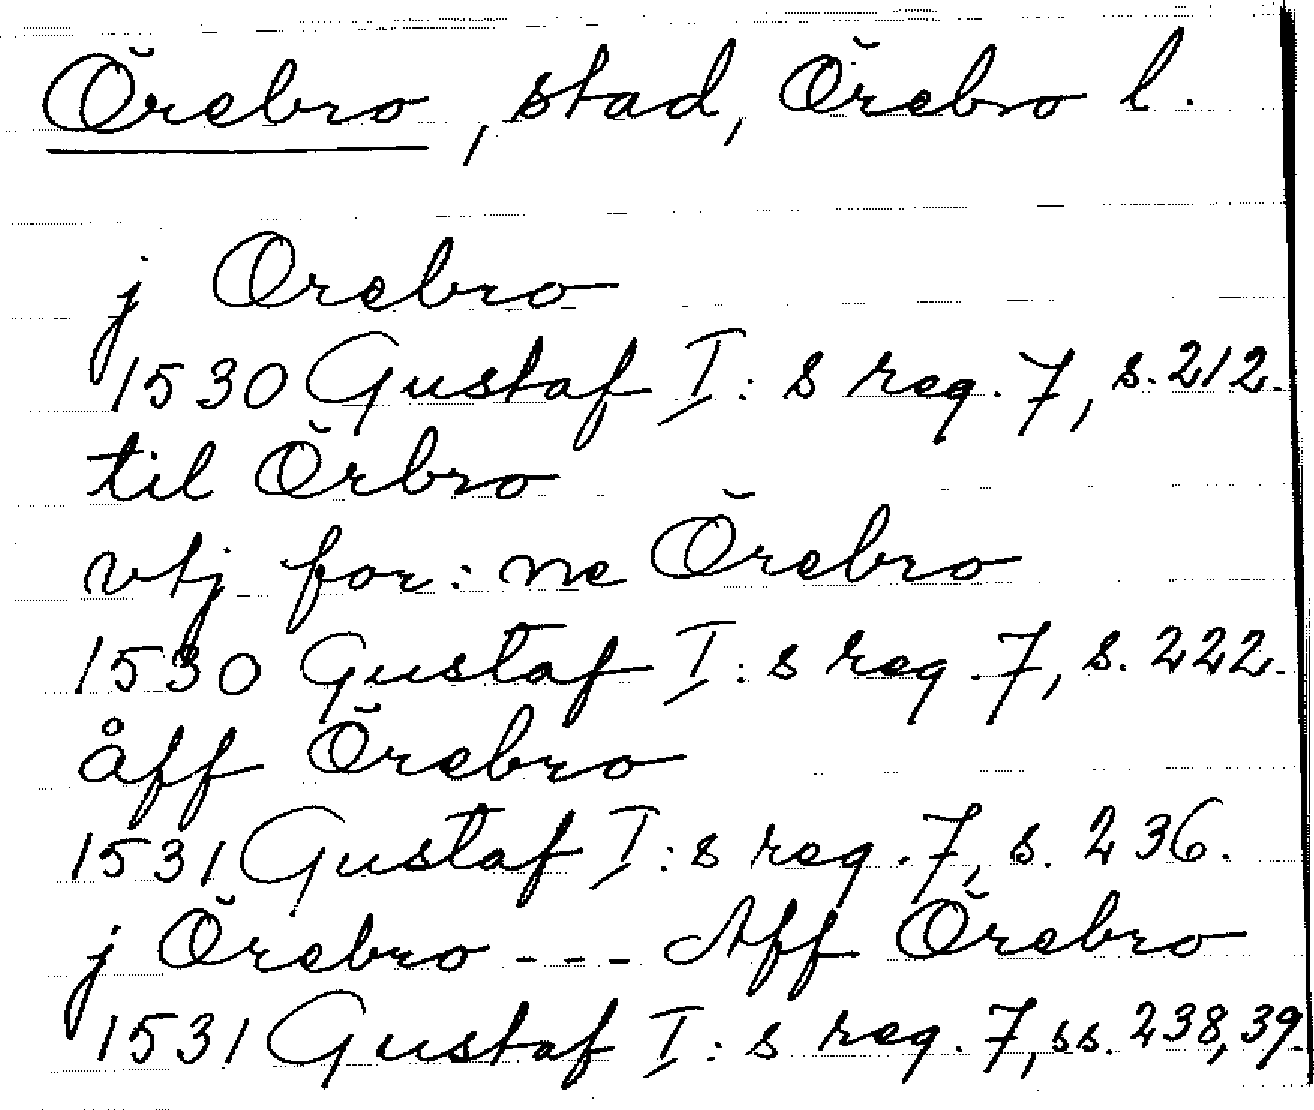 Örebro, stad, Örebro l.
j Orebro
1530 Gustaf I:s reg. 7, s. 212.
til Örbro
vtj for:ne Örebro
1530 Gustaf I:s reg. 7, s. 222.
åff Örebro
1531 Gustaf I:s reg. 7, s. 236.
j Örebro - - - Aff Örebro
1531 Gustaf I:s reg. 7, ss. 238, 39.